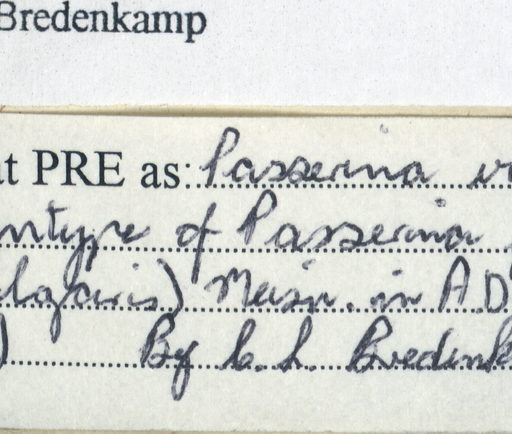 Bredenkamp
at PRE as: Passerina v
ntype of Passerina
lgaris) Meisn. in A.D
) By C.L. Bredenk